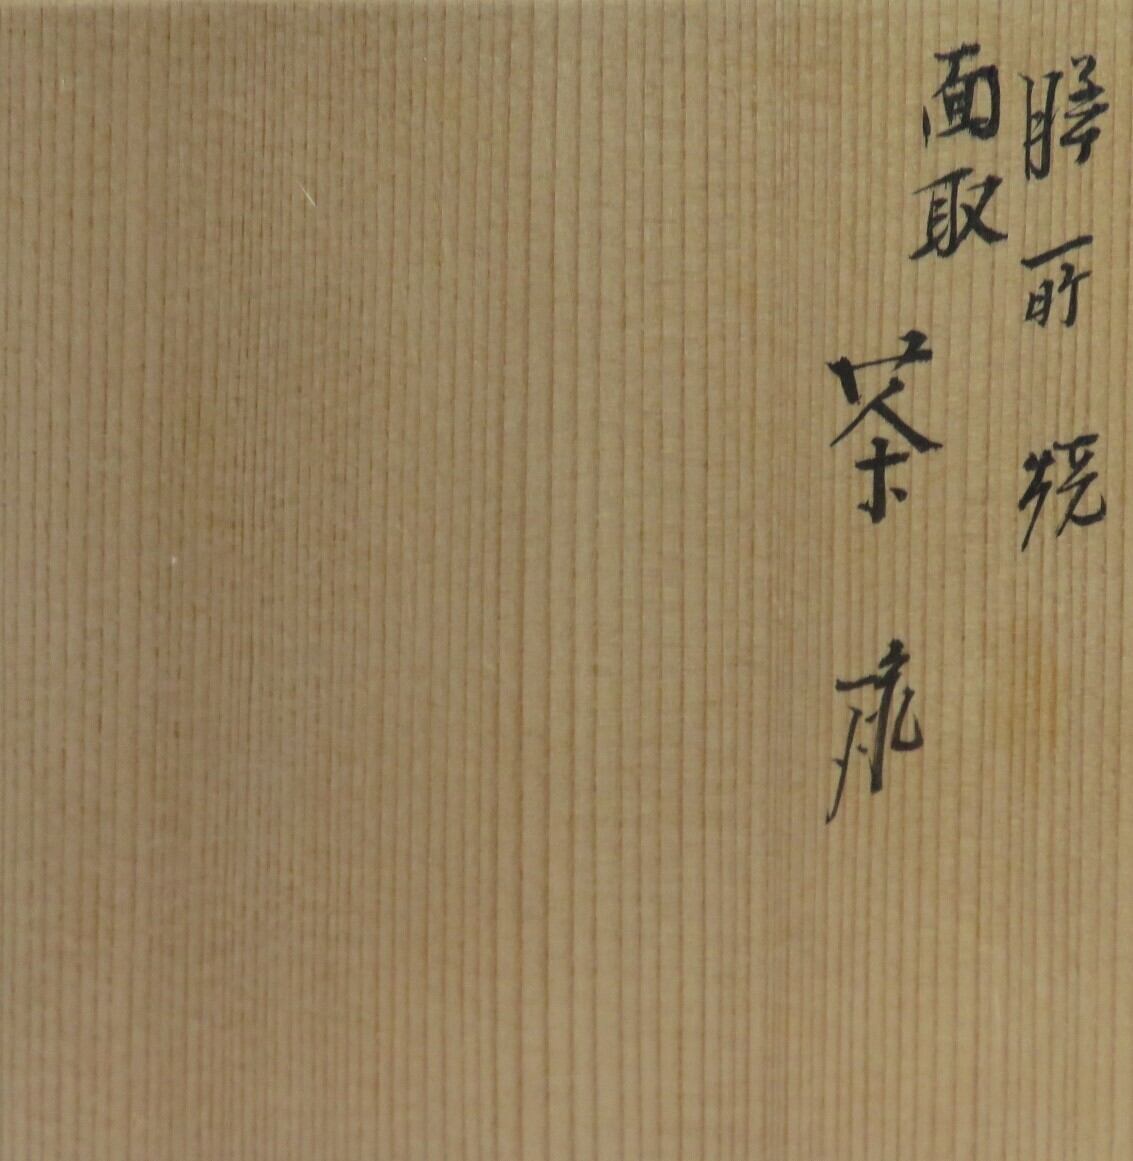 膳所焼
面取
茶